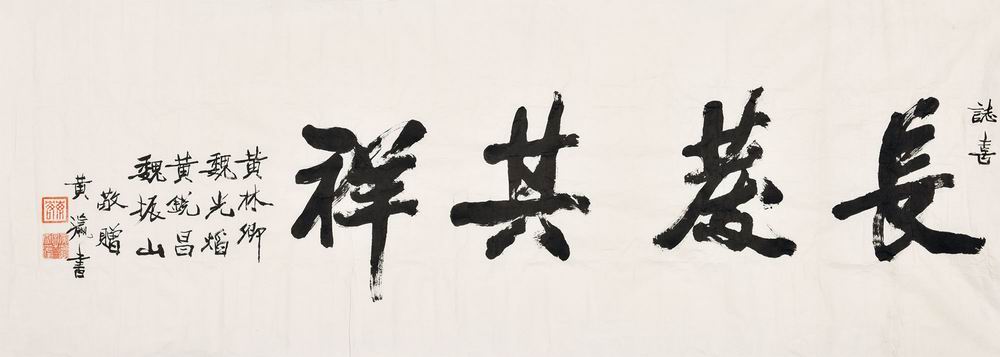 誌喜
長發其祥
黃林卿
魏光焰
黃銳昌
魏振山
敬贈
黃瀛書